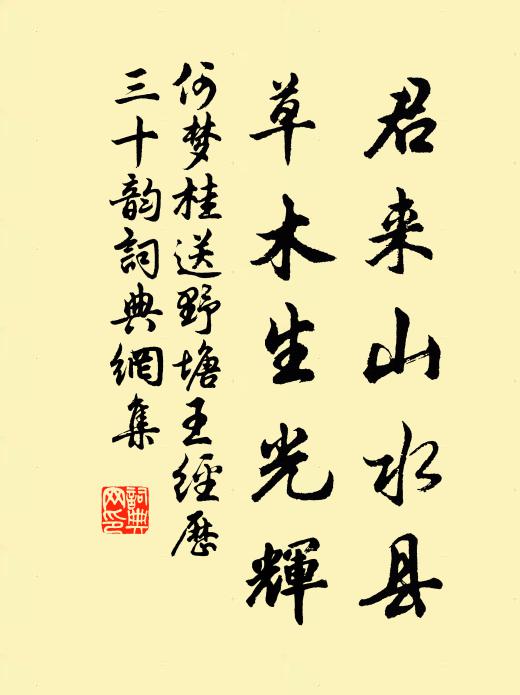 君来山水县
草木生光輝
何梦桂送野塘王經歷
三十韵詞典網集
詞典
网印